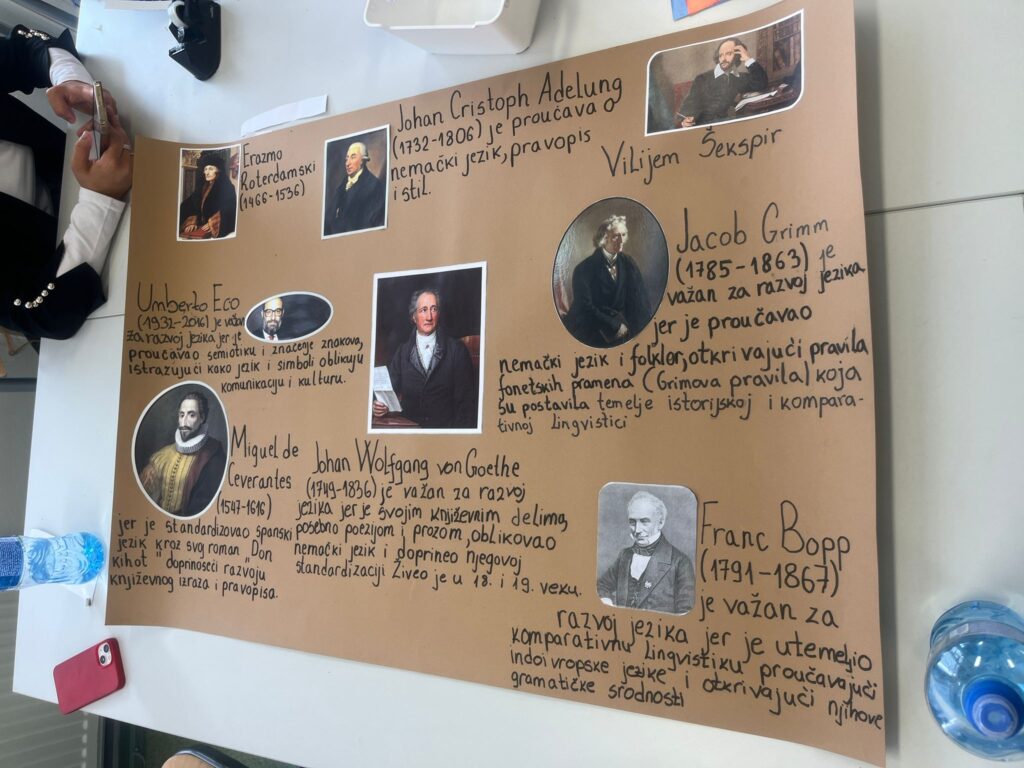 Erazmo
Roterdamski
(1466-1536)
Johan Cristoph Adelung
(1732-1806) je proučavao
nemački jezik, pravopis
i stil.
Vilijem Šekspir
Jacob Grimm
(1785-1863) je
važan za razvoj jezika
jer je proučavao
nemački jezik i folklor, otkrivajući pravila
fonetskih pramena (Grimova pravila) koja
su postavila temelje istorijskoj i kompara-
tivnoj lingvistici
Umberto Eco
(1932-2016) je važan
za razvoj jezika jer je
proučavao semiotiku i značenje znakova,
istrazujući kako jezik i simboli oblikuju
komunikaciju i kulturu.
Miguel de
Ceverantes
(1547-1616)
jer je standardizovao španski
jezik kroz svoj roman "Don
kihot" doprinoseći razvoju
književnog izraza i pravopisa.
Johan Wolfgang von Goethe
(1749-1836) je važan za razvoj
jezika jer je svojim književnim delima,
posebno poezijom i prozom, oblikovao
nemački jezik i doprineo njegovoj
standardizaciji Živeo je u 18. i 19. veku.
Franc Bopp
(1791-1867)
je važan za
razvoj jezika jer je utemeljio
komparativnu lingvistiku proučavajući
indoivropske jezike i otkrivajući njihove
gramatičke srodnosti